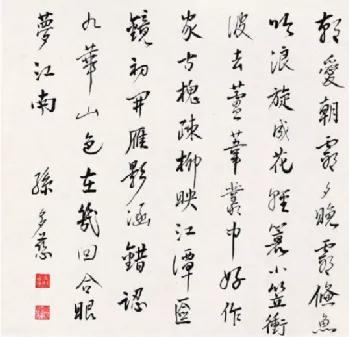 愛朝霞夕晚霞鯈魚
吹浪旋成花輕蓑小笠衝
波去蘆葦叢中好作
家古槐疎柳映江潭匣
鏡初開雁影涵錯認
九華山色在幾回合眼
夢江南 孫多慈